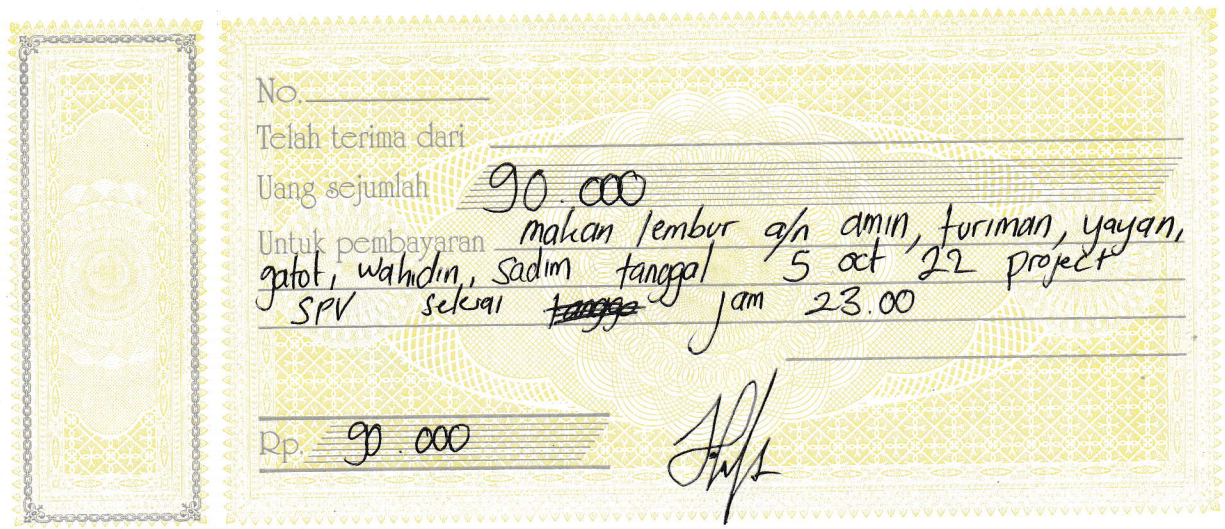 No.
Telah terima dari
Uang sejumlah 90.000
Untuk pembayaran makan lembur a/n amin, turiman, yayan,
gatot, wahidin, sadim tanggal 5 oct 22 project
SPV selesai tangga jam 23.00
Rp. 90.000